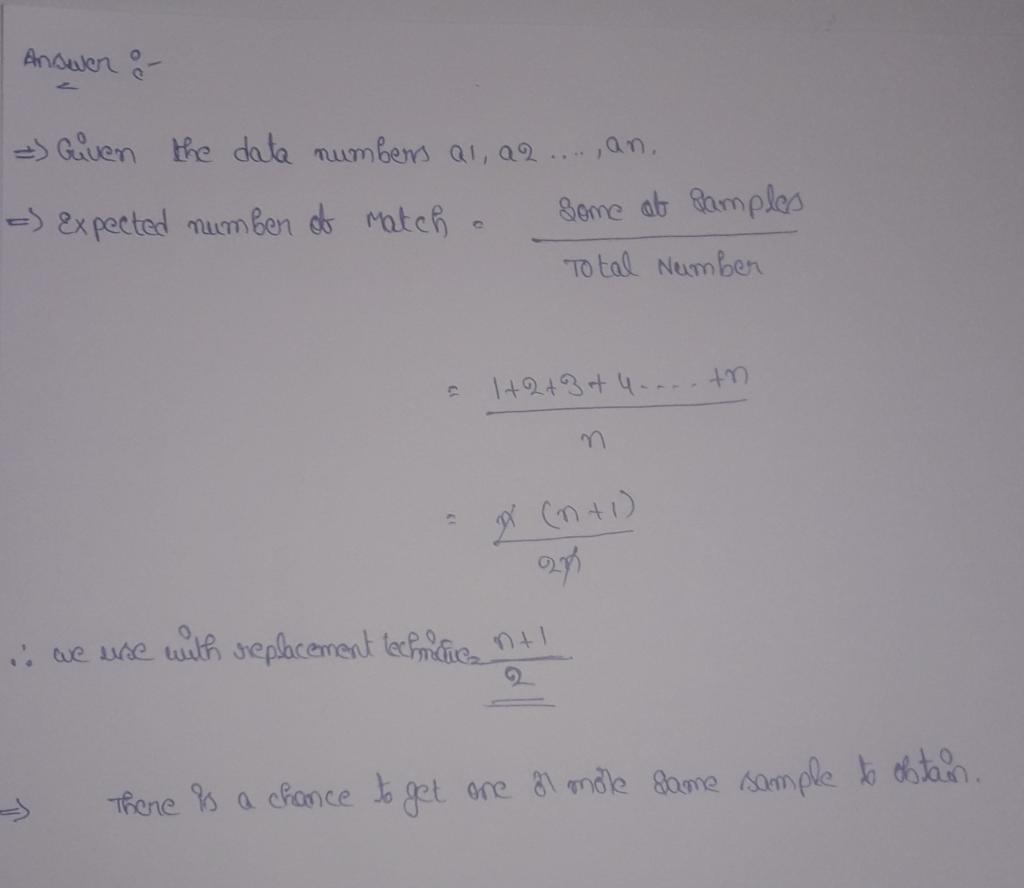 Answer :-
=> Given the data numbers a1, a2 ...., an.
=> Expected number of Match = Some of Samples
Total Number
= 1+2+3+4.....+n
n
= n (n+1)
2n
∴ we use with replacement technique = n+1
2
=> There is a chance to get one or more same sample to obtain.